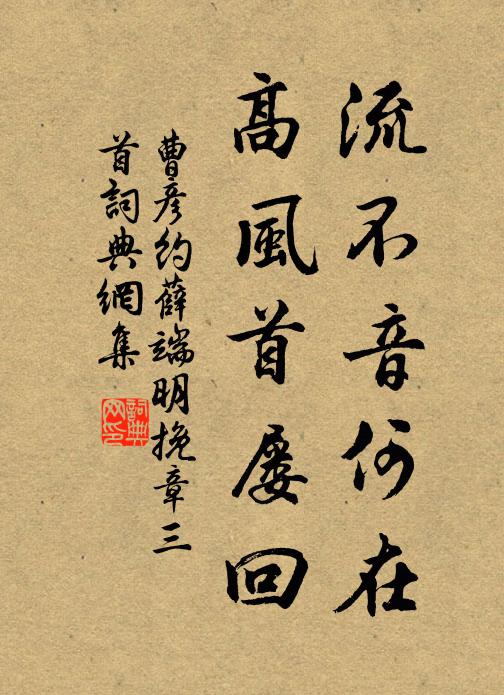 流不音何在
高風首屡回
曹彦約薛端明挽章三
首詞典網集
詞典网印